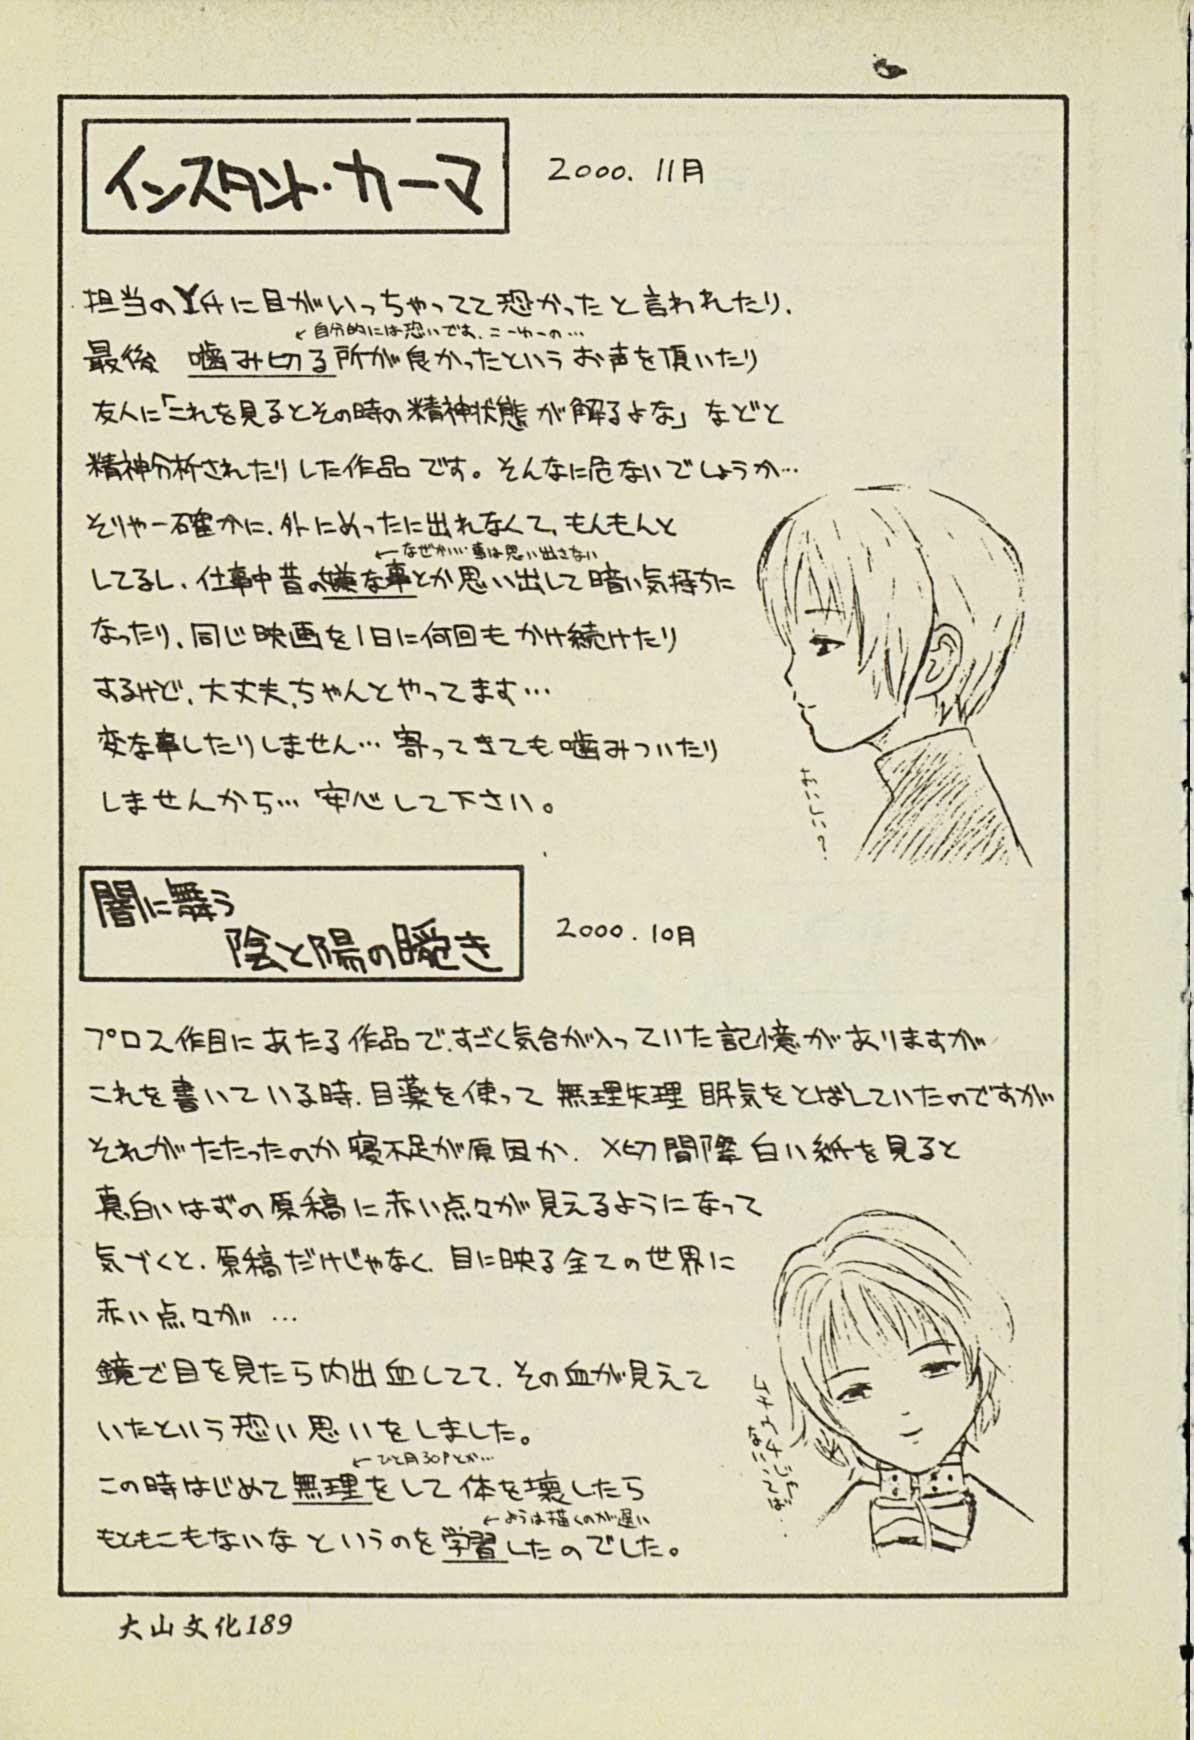 インスタント・カーマ
2000. 11月
担当のY子に目がいっちゃってて恐かったと言われたり、
←自分的には恐いです、こーゆーの…
最後 噛み切る所が良かったというお声を頂いたり
友人に「これを見るとその時の精神状態が解るよな」などと
精神分析されたりした作品です。そんなに危ないでしょうか…
そりゃー確かに、外にめったに出れなくて、もんもんと
←なぜかいい事は思い出さない
してるし、仕事中昔の嫌な事とか思い出して暗い気持ちに
なったり、同じ映画を1日に何回もかけ続けたり
するけど、大丈夫、ちゃんとやってます…
変な事したりしません… 寄ってきても噛みついたり
しませんから… 安心して下さい。
おいしい？
闇に舞う
陰と陽の瞬き
2000. 10月
プロ2作目にあたる作品で、すごく気合が入っていた記憶がありますが
これを書いている時、目薬を使って無理矢理眠気をとばしていたのですが
それがたたったのか寝不足が原因か、〆切間際白い紙を見ると
真白いはずの原稿に赤い点々が見えるようになって
気づくと、原稿だけじゃなく、目に映る全ての世界に
赤い点々が…
鏡で目を見たら内出血してて、その血が見えて
いたという恐い思いをしました。
←ひと月30Pとか…
この時はじめて無理をして体を壊したら
←ようは描くのが遅い
もともこもないなというのを学習したのでした。
大山文化189